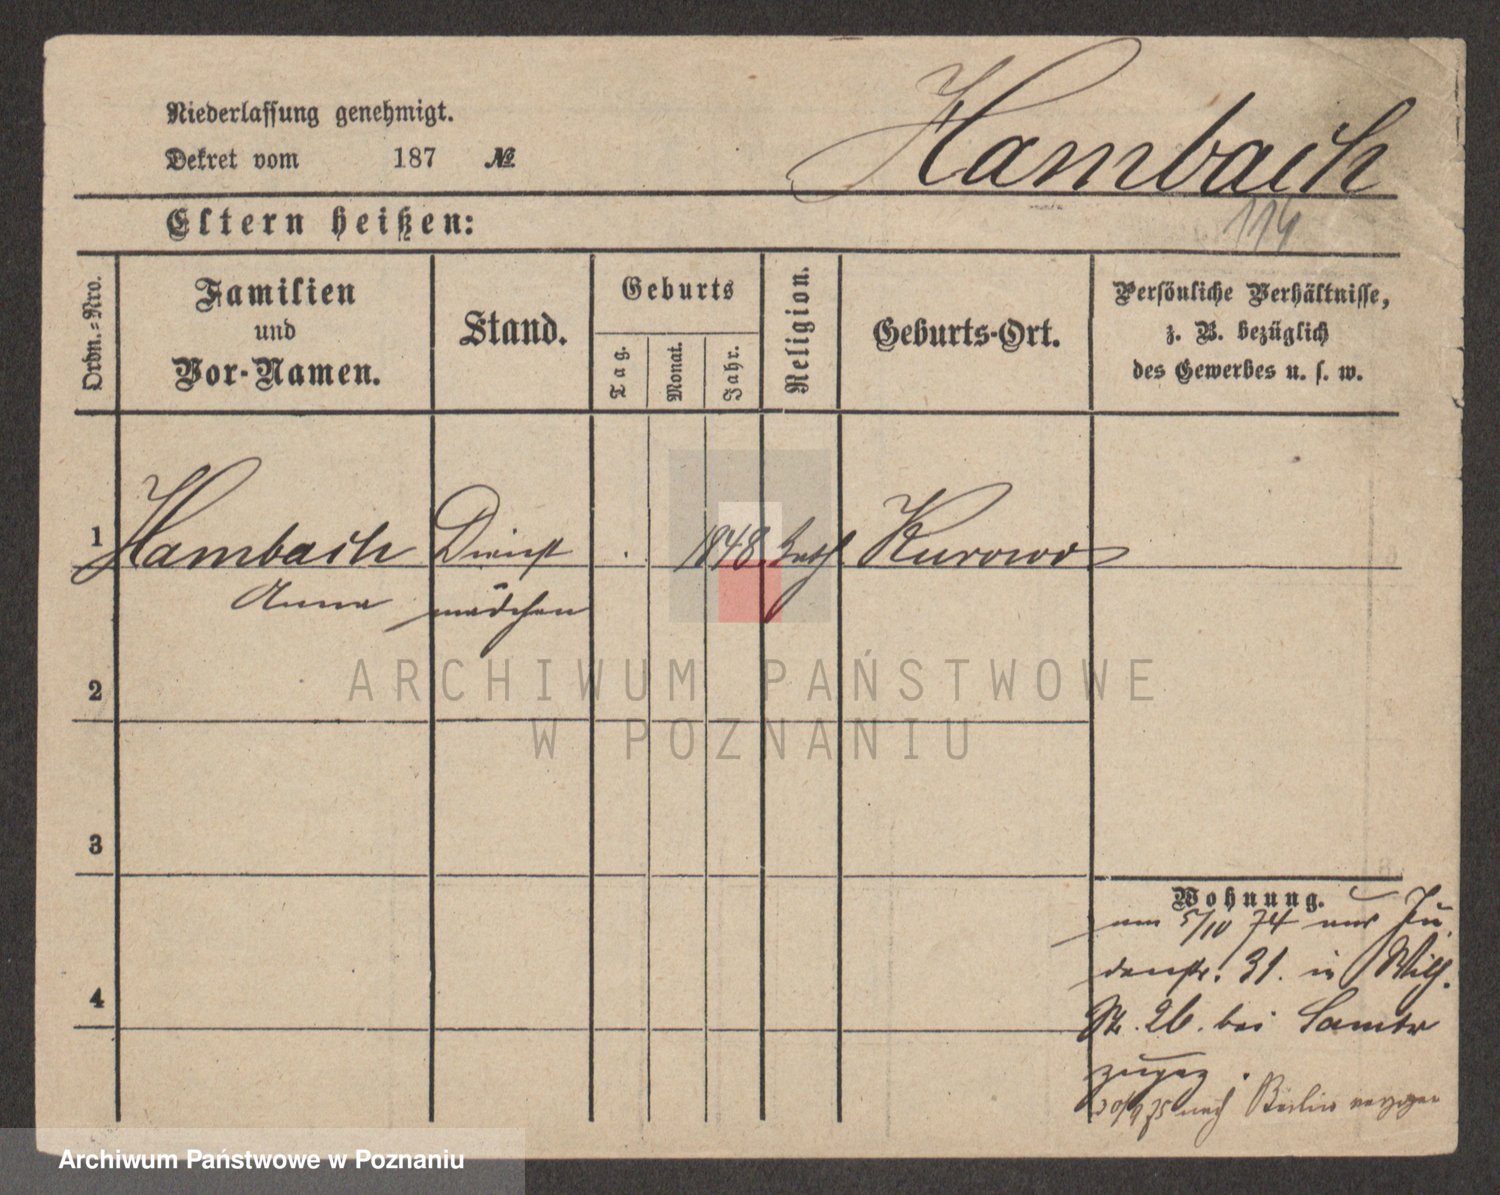 Niederlassung genehmigt.
Dekret vom 187 №
Hambach
114
Eltern heißen:
Ordn.=Nro.
Familien
und
Vor-Namen.
Stand.
Geburts
Tag.
Monat.
Jahr.
Religion.
Geburts-Ort.
Persönliche Verhältnisse,
z. B. bezüglich
des Gewerbes u. s. w.
1 Hambach Dienst 1848. kath. Kurowo
Anna mädchen
2
ARCHIWUM PAŃSTWOWE
W POZNANIU
3
Wohnung.
am 5/10 74 aus Ju
denstr. 31. in Wilh.
4
Str. 26. bei
zugez.
30/9 75 nach Berlin verzogen
Archiwum Państwowe w Poznaniu